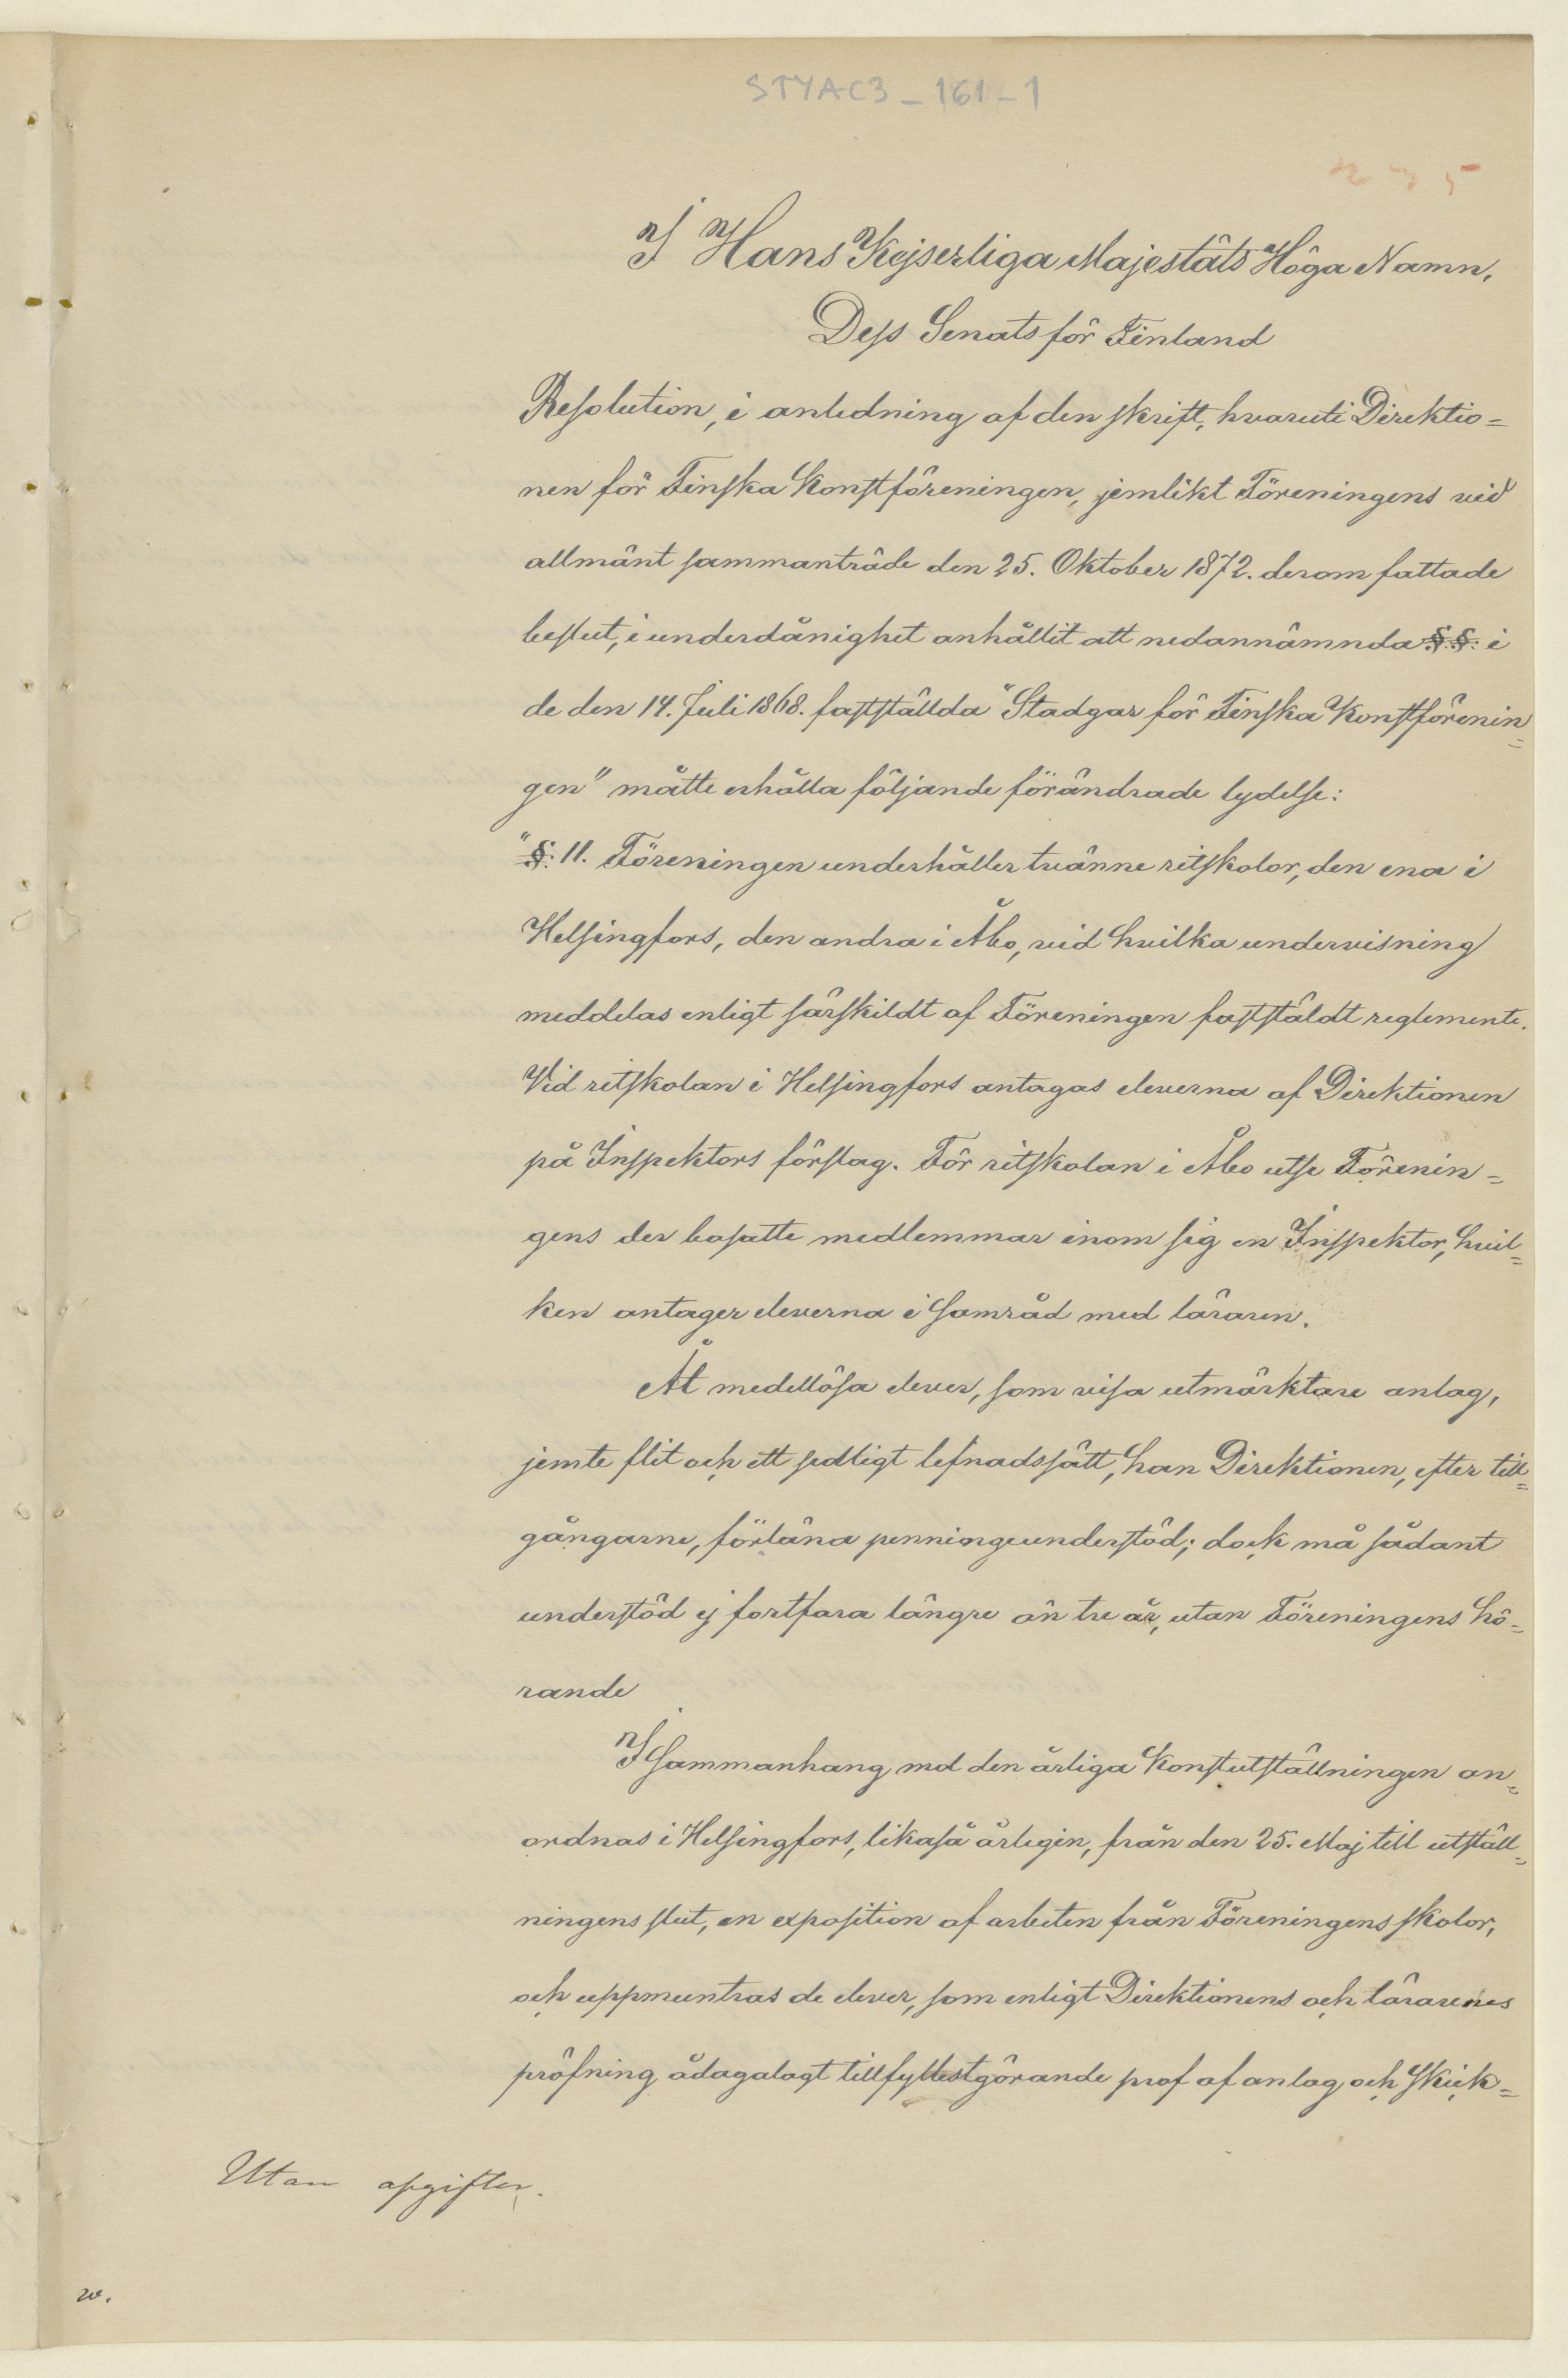 STYAC3_161_1
275
I Hans Kejserliga Majestäts Höga Namn,
Dess Senats för Finland
Resolution, i anledning af den skrift, hvaruti Direktio=
nen för Finska Konstföreningen, jemlikt Föreningens vid
allmänt sammanträde den 25. Oktober 1872. derom fattade
beslut, i underdånighet anhållit att nedannämnda §.§. i
de den 14. Juli 1868. fastställda "Stadgar för Finska Konstförenin=
gen" måtte erhålla följande förändrade lydelse:
"§. 11. Föreningen underhåller tvänne ritskolor, den ena i
Helsingfors, den andra i Åbo, vid hvilka undervisning
meddelas enligt särskildt af Föreningen faststäldt reglemente.
Vid ritskolan i Helsingfors antagas eleverna af Direktionen
på Inspektors förslag. För ritskolan i Åbo utse Förenin=
gens der bosatte medlemmar inom sig en Inspektor, hvil=
ken antager eleverna i samråd med läraren.
Åt medellösa elever, som visa utmärktare anlag,
jemte flit och ett sedligt lefnadssätt, kan Direktionen, efter till=
gångarne, förläna penningeunderstöd; dock må sådant
understöd ej fortfara längre än tre år, utan Föreningens hö=
rande
I sammanhang med den årliga Konstutställningen an=
ordnas i Helsingfors, likaså årligin, från den 25. Maj till utställ=
ningens slut, en exposition af arbeten från Föreningens skolor,
och uppmuntras de elever, som enligt Direktionens och lärarenes
pröfning ådagalagt tillfyllestgörande prof af anlag och skick=
Utan afgifter.
w.